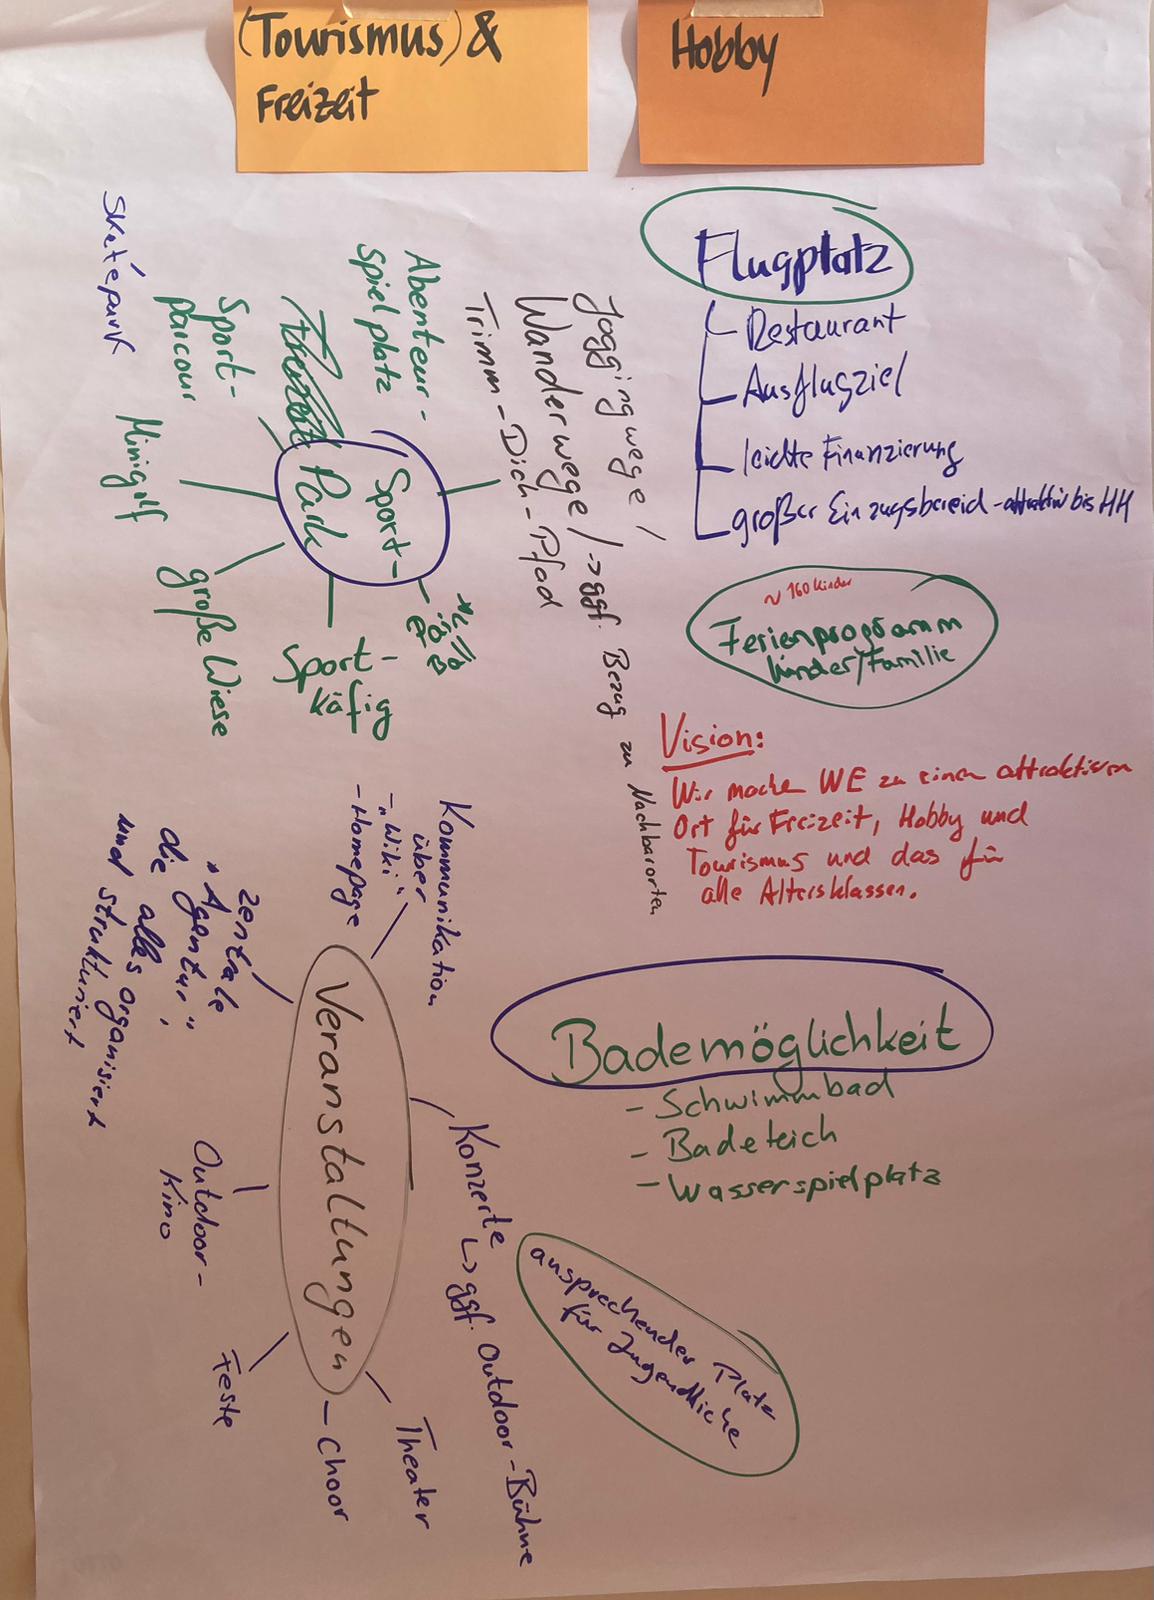 (Tourismus) &
Freizeit
Hobby
Flugplatz
Restaurant
Ausflugziel
leichte Finanzierung
großer Einzugsbereich - attraktiv bis HH
~ 160 Kinder
Ferienprogramm
Kinder/Familie
Vision:
Wir machen WE zu einem attraktiven
Ort für Freizeit, Hobby und
Tourismus und das für
alle Altersklassen.
Bademöglichkeit
- Schwimmbad
- Badeteich
- Wasserspielplatz
ansprechender Platz
für Jugendliche
Joggingwege /
Wanderwege / -> ggf. Bezug zu Nachbarorten
Trimm-Dich-Pfad
Abenteuer-
spielplatz
Sport-
Park
Sport-
parcour
Skatepark
Minigolf
große Wiese
Sport-
käfig
Kommunikation
über
- „Wiki“
- Homepage
zentrale
„Agentur“,
die alles organisiert
und strukturiert
Veranstaltungen
Konzerte
↳ ggf. Outdoor-Bühne
Outdoor-
Kino
Feste
Theater
Choor